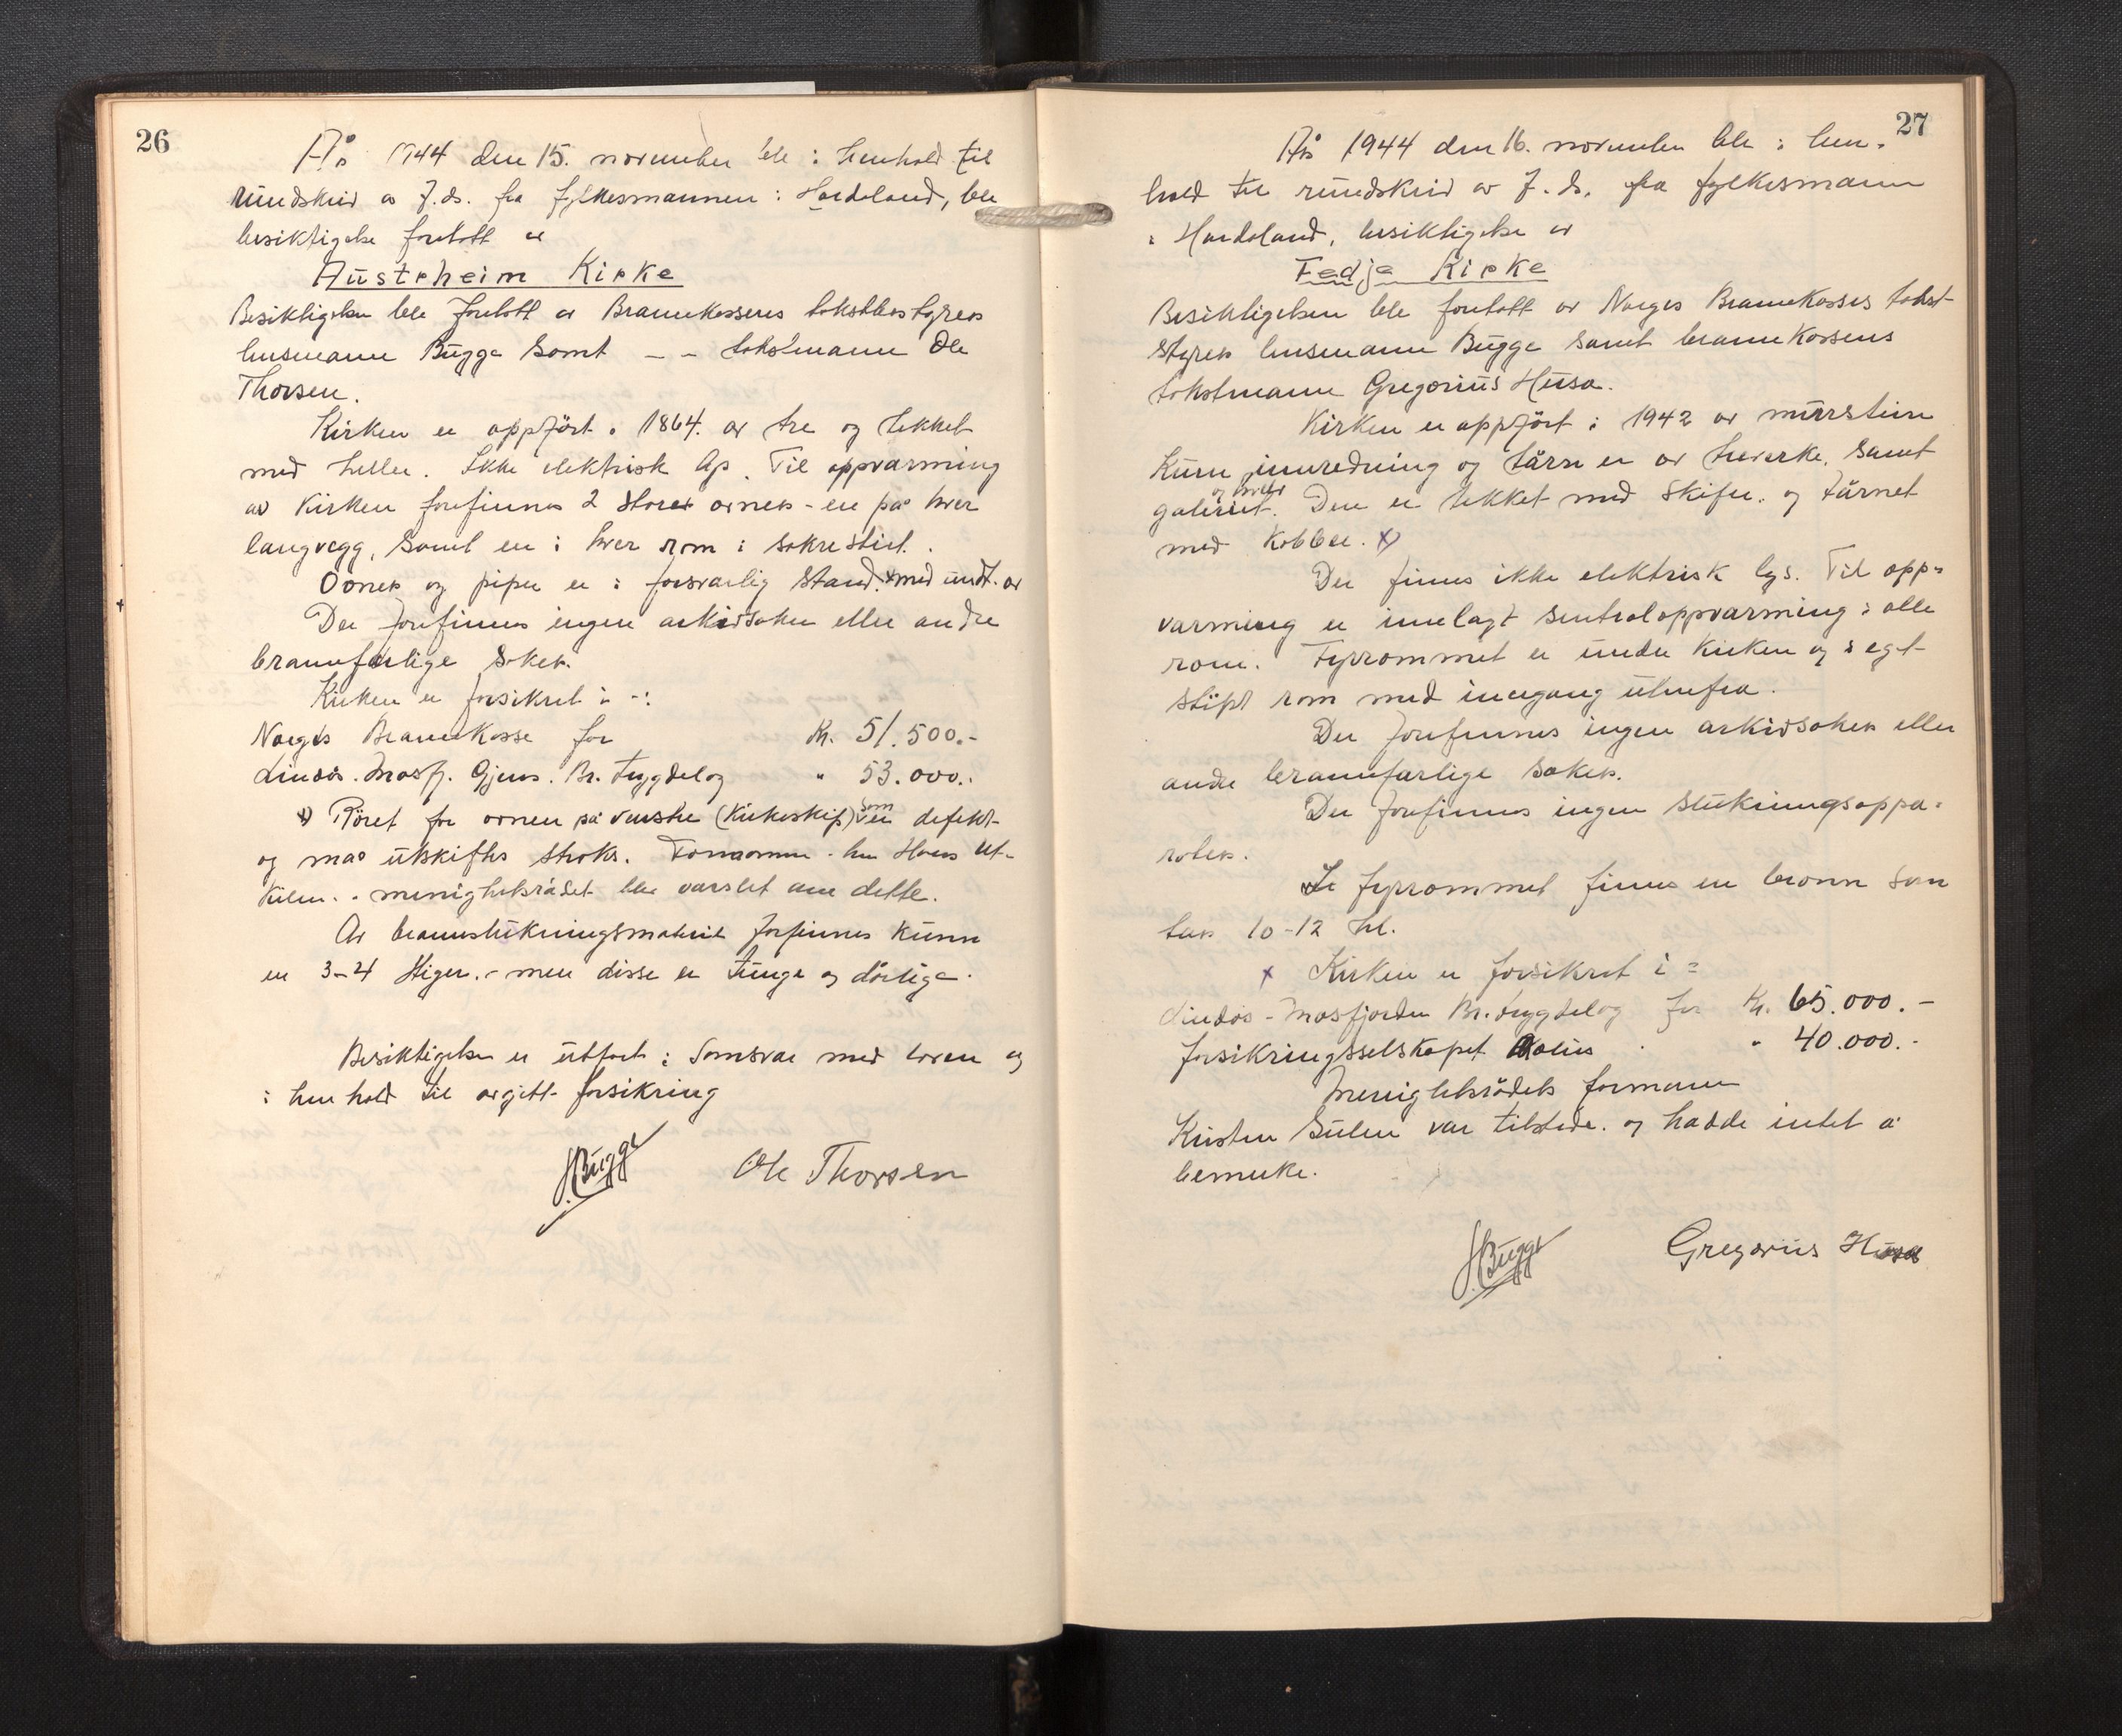 26
År 1944 den 15. november ble i henhold til
rundskriv av f.d. fra fylkesmannen i Hordaland, ble
besiktigelse foretatt av
Austrheim Kirke
Besiktigelsen ble foretatt av Brannkassens takstbestyrer
lensmann Bugge samt - - takstmann Ole
Thorsen.
Kirken er oppført i 1864. av tre og tekket
med heller. Ikke elektrisk lys. Til oppvarming
av Kirken forefinnes 2 store ovner - en på hver
langvegg, samt en i hver rom i sakristiet.
Ovner og piper er i forsvarlig stand x med undt. av
Der forefinnes ingen arkivsaker eller andre
brannfarlige saker.
Kirken er forsikret i :
Norges Brannkasse for Kr. 51.500.-
Lindås. Masfj. Gjens. Br. trygdelag " 53.000.-
x) Röret for ovnen på venstre (Kirkeskip) som er defekt
og må utskiftes straks. Formannen Hans Ut-
kilen i menighetsrådet ble varslet om dette.
Av brannslukningsmateriel forfinnes kunn
en 3-4 stiger - men disse er tunge og dårlige.
Besiktigelsen er utført i samsvar med loven og
i henhold til avgitt forsikring
HBugge Ole Thorsen
27
År 1944 den 16. november ble i hen-
hold til rundskriv av f.d. fra fylkesmann
i Hordaland, besiktigelse av
Fedje Kirke
Besiktigelsen ble foretatt av Norges Brannkasses takst-
styrer lensmann Bugge samt brannkassens
takstmann Gregorius Husa.
Kirken er oppfört i 1942 av murstein
Kunn innredning og tårn er av treverke, samt
galleriet. Den er tekket med skifer og tårnet
med kobber. x)
Der finnes ikke elektrisk lys. Til opp-
varming er innelagt sentraloppvarming i alle
rom. Fyrrommet er under kirken og i eget
støpt rom med inngang utenfra.
Der forefinnes ingen arkivsaker eller
andre brannfarlige saker.
Der forefinnes ingen slukningsappa-
rater.
I fyrrommet finnes en brønn som
tar 10-12 hl.
x Kirken er forsikret i :
Lindås - Masfjorden Br. trygdelag for Kr. 65.000.-
forsikringsselskapet " 40.000.-
Menighetsrådets formann
Kristen Gullen var tilstede og hadde intet å
bemerke.
HBugge Gregorius Husa